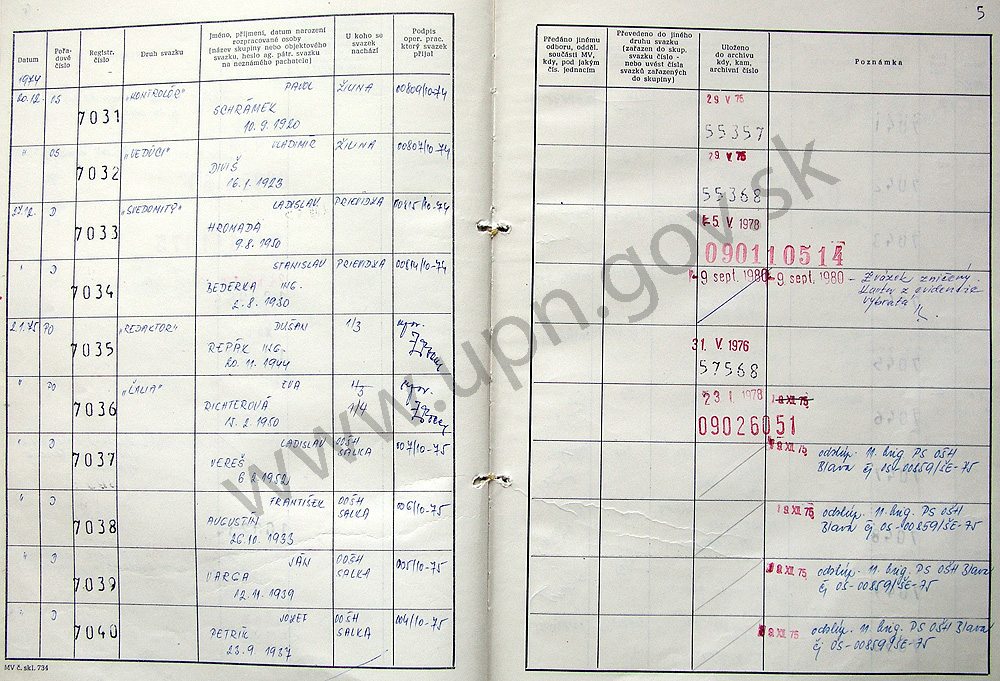 5
Datum
Pořa-
dové
číslo
Registr.
číslo
Druh svazku
Jméno, příjmení, datum narození
rozpracované osoby
(název skupiny nebo objektového
svazku, heslo ag. pátr. svazku
na neznámého pachatele)
U koho se
svazek
nachází
Podpis
oper. prac.
který svazek
přijal
Předáno jinému
odboru, odděl.
součásti MV,
kdy, pod jakým
čís. jednacím
Převedeno do jiného
druhu svazku
(zařazen do skup.
svazku číslo -
nebo uvést čísla
svazků zařazených
do skupiny)
Uloženo
do archivu
kdy, kam,
archivní číslo
Poznámka
1974
20.12. OS 7031 „KONTROLÓR“ PAVOL ŽILINA 00809/10-74
SCHRÁMEK
10.9.1920
29 V 75
55357
" OS 7032 „VEDÚCI“ VLADIMÍR ŽILINA 00807/10-74
DIVIŠ
16.1.1923
29 V 75
55368
27.12. D 7033 „SVEDOMITÝ“ LADISLAV PRIEVIDZA 00815/10-74
HROMADA
9.8.1950
-5. V. 1978
090110514
" D 7034 STANISLAV PRIEVIDZA 00814/10-74
BEDERKA ING.
2.8.1930
-9 sept. 1980 -9 sept. 1980 - Zväzok zničený
Karta z evidencie
vybratá
2.1.75 PO 7035 „REDAKTOR“ DUŠAN 1/3
REPÁK ING.
20.11.1944
31. V. 1976
57568
" PO 7036 EVA
RICHTEROVÁ 1/4
15.2.1950
23. I 1978
09026051
" D 7037 LADISLAV OOŠH 007/10-75
VEREŠ SALKA
6.2.1952
19. XII. 75 odstúp. 11. brig. PS OŠH
Blava čj OS-00859/ŠE-75
" D 7038 FRANTIŠEK OOŠH 006/10-75
AUGUSTÍN SALKA
26.10.1933
19. XII. 75 odstúp. 11. brig. PS OŠH
Blava čj OS-00859/ŠE-75
" D 7039 JÁN OOŠH 005/10-75
VARGA SALKA
12.11.1939
19. XII. 75 odstúp. 11. brig. PS OŠH Blava
čj OS-00859/ŠE-75
" D 7040 JOZEF OOŠH 004/10-75
PETRÍK SALKA
23.9.1937
19. XII. 75 odstúp. 11. brig. PS OŠH Blava
čj OS-00859/ŠE-75
MV č. skl. 734
www.upn.gov.sk